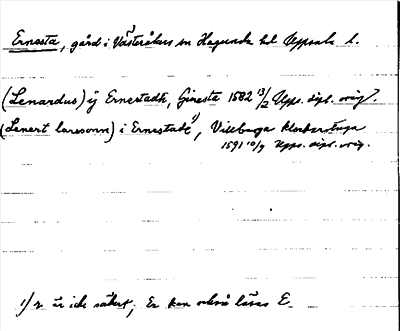 Ernesta, gård i Västeråkers sn Hagunda hd Uppsala l.
(Lenardus) ij Ernestadh, Ginesta 1582 13/2 Upps. dipl. orig.
(Lenert larsonn) i Ernestade 1/, Viteberga klockarstuga
1591 10/9 Upps. dipl. orig.
1/ r är icke säkert; Er kan också läsas E.